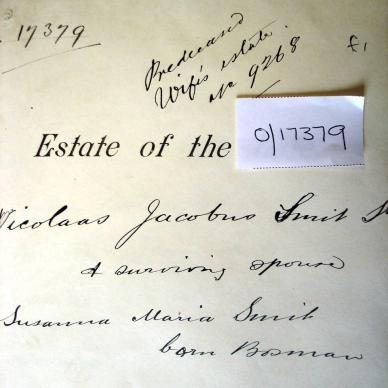 17379
Predeceased
Wife's estate
No 9268
£1
Estate of the
0/17379
Nicolaas Jacobus Smit
& surviving spouse
Susanna Maria Smit
born Bosman